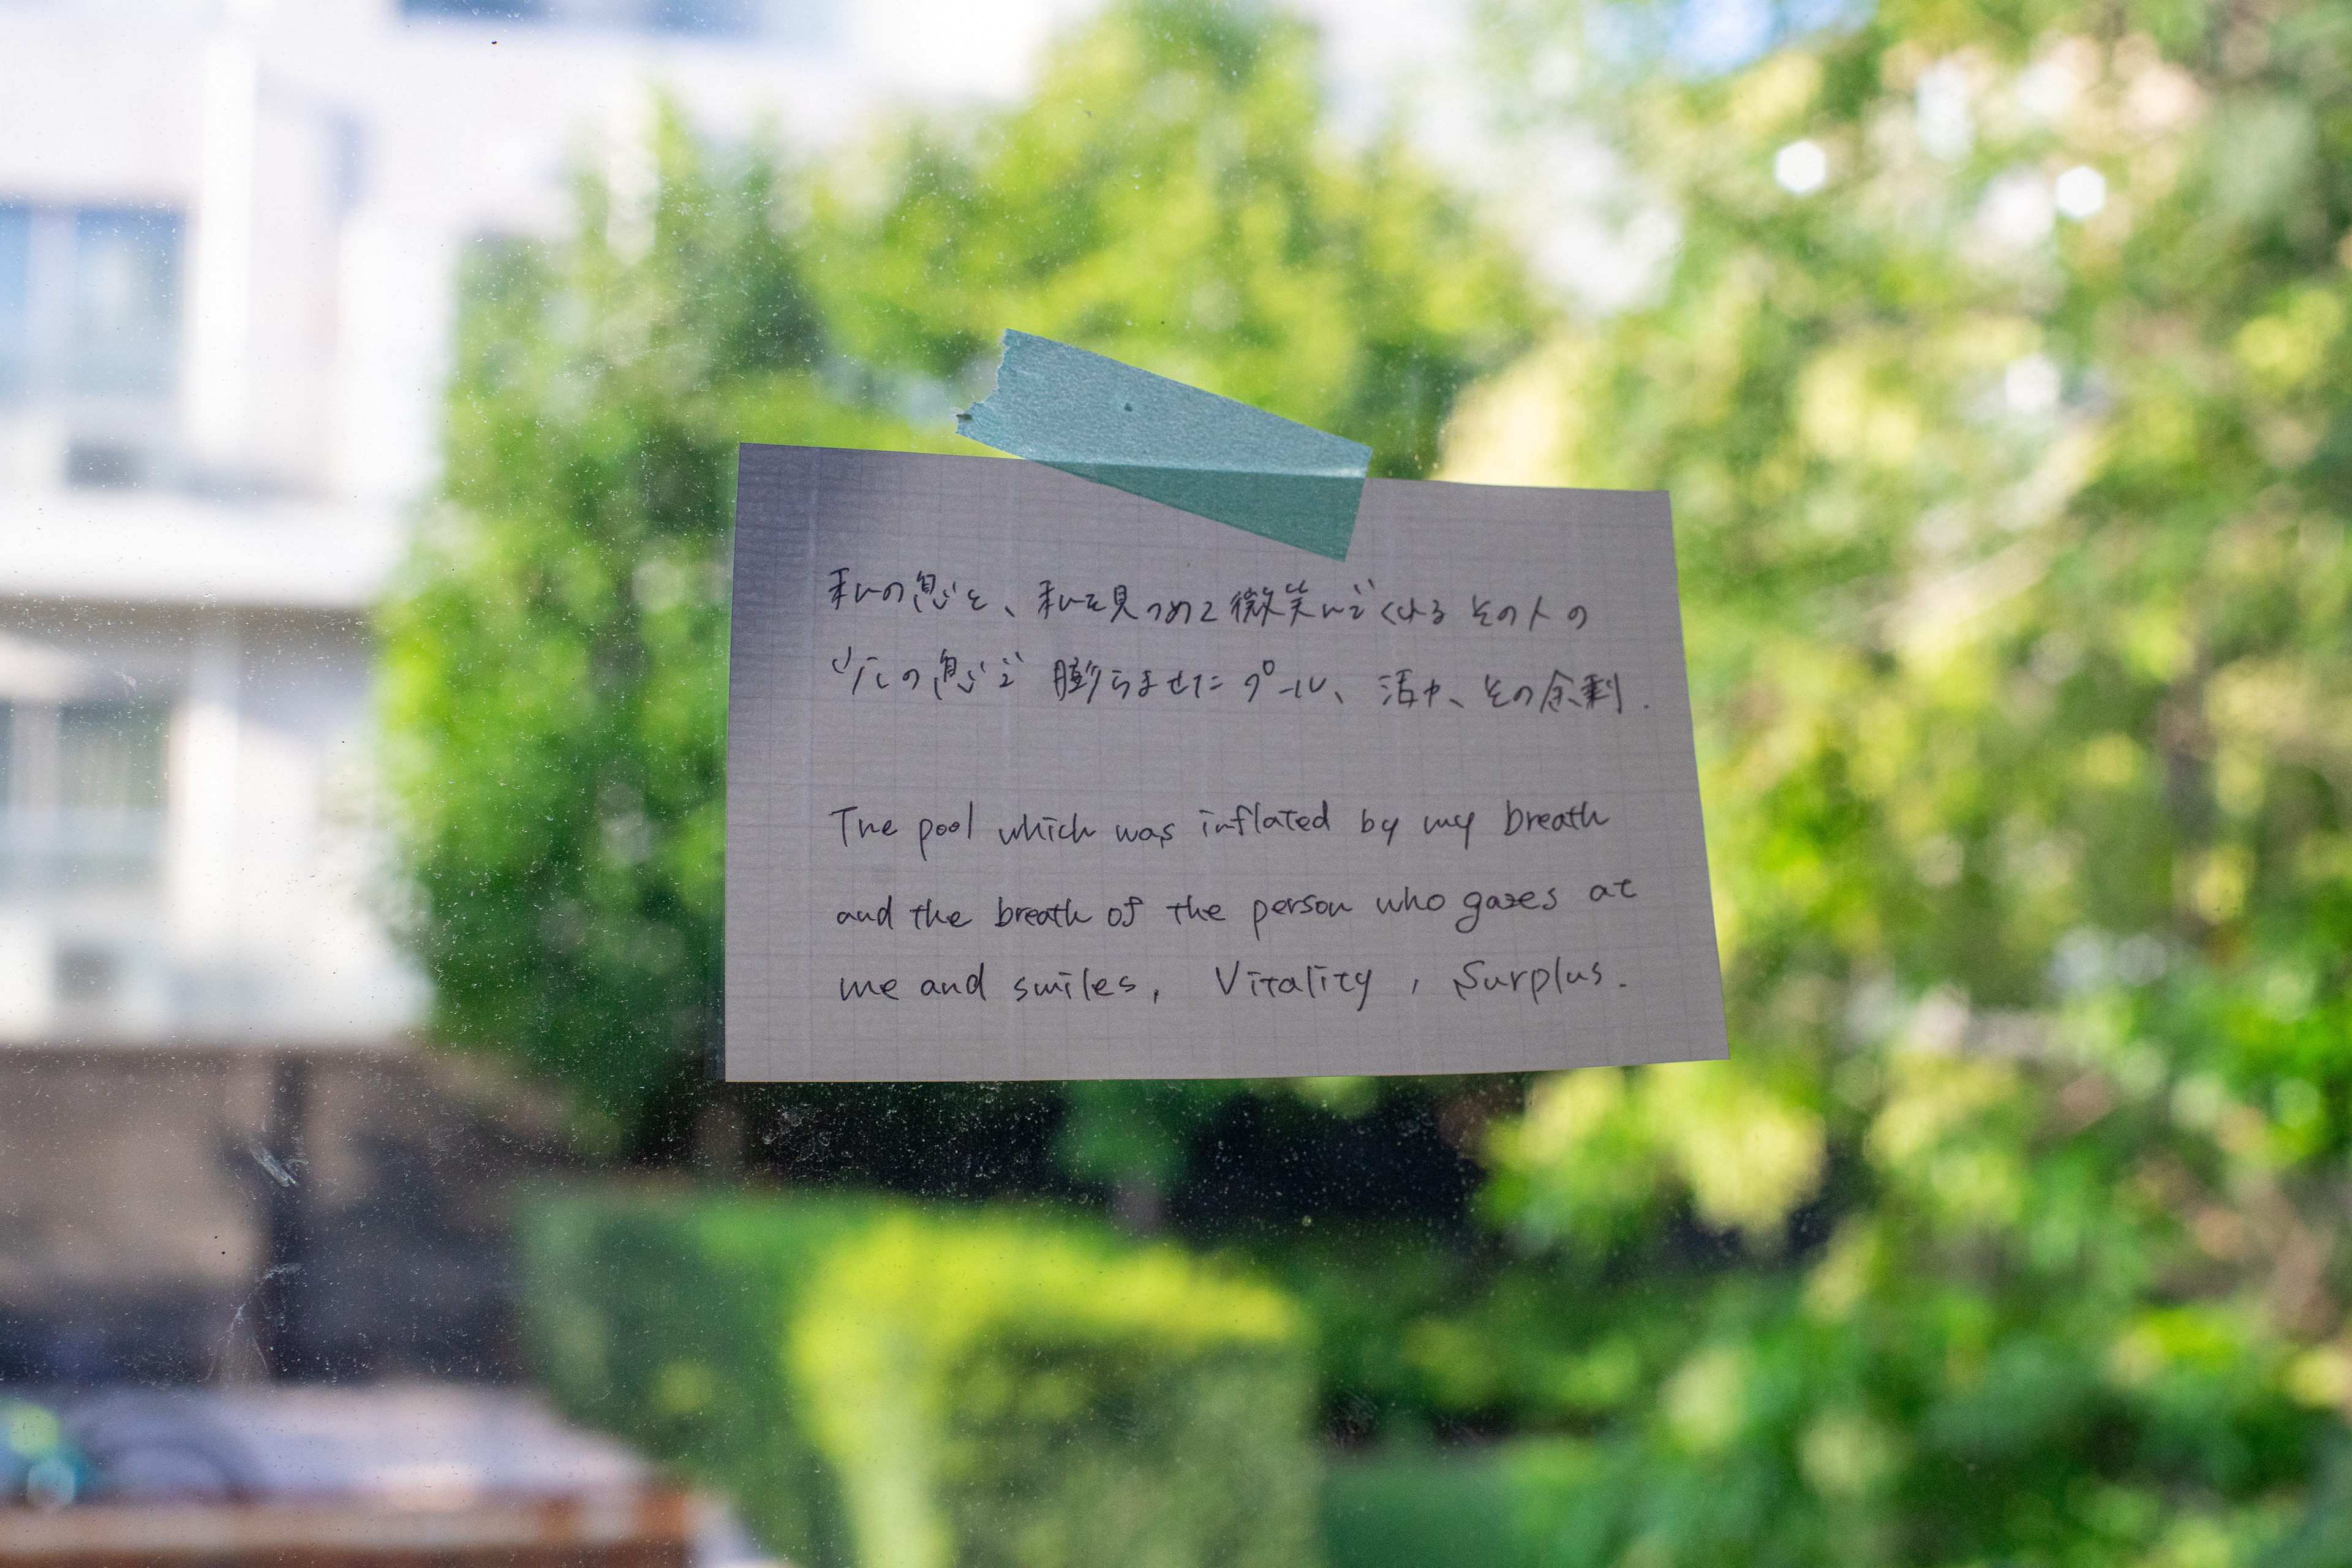 私の息と、私を見つめて微笑んでくれる その人の
の息で 膨らませたプール、活力、その余剰.
The pool which was inflated by my breath
and the breath of the person who gazes at
me and smiles, Vitality, Surplus.